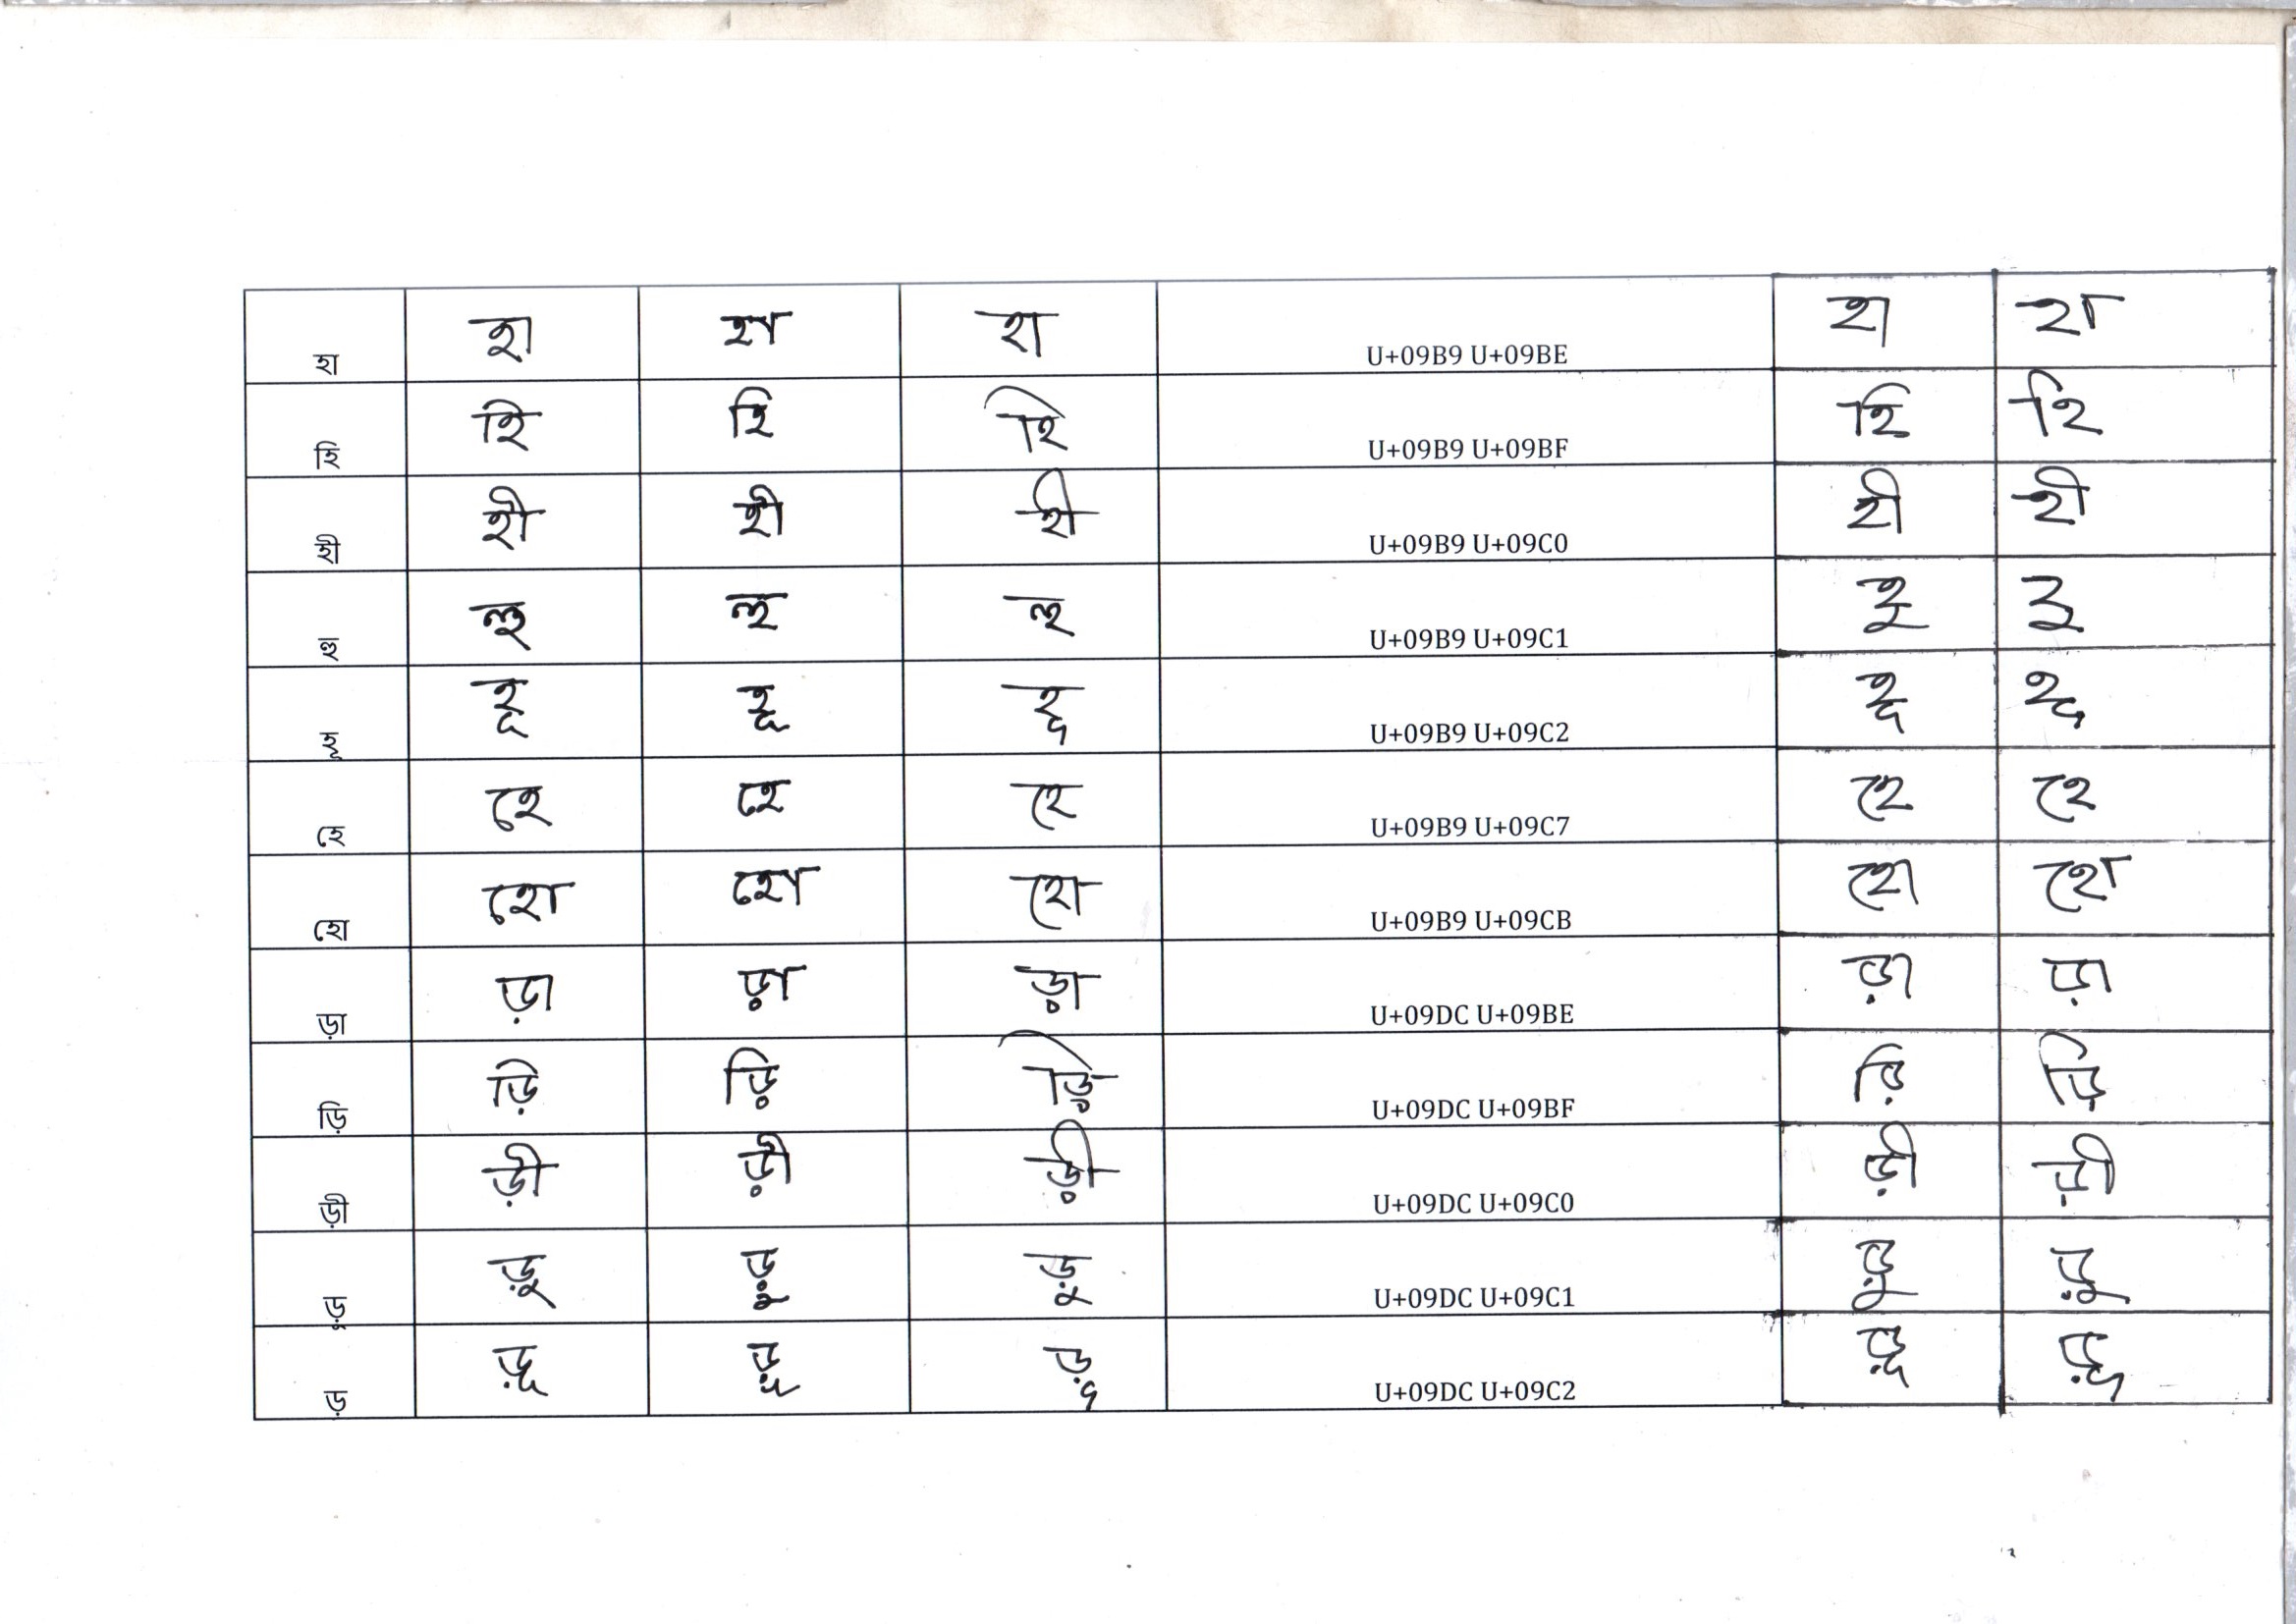 হা হা হা হা U+09B9 U+09BE হা হা
হি হি হি হি U+09B9 U+09BF হি হি
হী হী হী হী U+09B9 U+09C0 হী হী
হু হু হু হু U+09B9 U+09C1 হু হু
হূ হূ হূ হূ U+09B9 U+09C2 হূ হূ
হে হে হে হে U+09B9 U+09C7 হে হে
হো হো হো হো U+09B9 U+09CB হো হো
ড়া ড়া ড়া ড়া U+09DC U+09BE ড়া ড়া
ড়ি ড়ি ড়ি ড়ি U+09DC U+09BF ড়ি ড়ি
ড়ী ড়ী ড়ী ড়ী U+09DC U+09C0 ড়ী ড়ী
ড়ু ড়ু ড়ু ড়ু U+09DC U+09C1 ড়ু ড়ু
ড় ড়ূ ড়ূ ড়ূ U+09DC U+09C2 ড়ূ ড়ূ